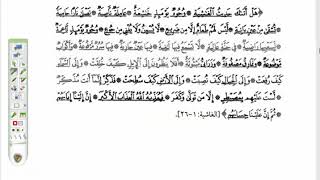 ﴿هَلْ أَتَىٰكَ حَدِيثُ ٱلْغَٰشِيَةِ * وُجُوهٌ يَوْمَئِذٍ خَٰشِعَةٌ * عَامِلَةٌ نَّاصِبَةٌ * تَصْلَىٰ نَارًا حَامِيَةً
تُسْقَىٰ مِنْ عَيْنٍ ءَانِيَةٍ * لَّيْسَ لَهُمْ طَعَامٌ إِلَّا مِن ضَرِيعٍ * لَّا يُسْمِنُ وَلَا يُغْنِي مِن جُوعٍ * وُجُوهٌ يَوْمَئِذٍ نَّاعِمَةٌ
لِّسَعْيِهَا رَاضِيَةٌ * فِي جَنَّةٍ عَالِيَةٍ * لَّا تَسْمَعُ فِيهَا لَٰغِيَةً * فِيهَا عَيْنٌ جَارِيَةٌ * فِيهَا سُرُرٌ مَّرْفُوعَةٌ * وَأَكْوَابٌ
مَّوْضُوعَةٌ * وَنَمَارِقُ مَصْفُوفَةٌ * وَزَرَابِيُّ مَبْثُوثَةٌ * أَفَلَا يَنظُرُونَ إِلَى ٱلْإِبِلِ كَيْفَ خُلِقَتْ * وَإِلَى ٱلسَّمَآءِ
كَيْفَ رُفِعَتْ * وَإِلَى ٱلْجِبَالِ كَيْفَ نُصِبَتْ * وَإِلَى ٱلْأَرْضِ كَيْفَ سُطِحَتْ * فَذَكِّرْ إِنَّمَآ أَنتَ مُذَكِّرٌ
* لَّسْتَ عَلَيْهِم بِمُصَيْطِرٍ * إِلَّا مَن تَوَلَّىٰ وَكَفَرَ * فَيُعَذِّبُهُ ٱللَّهُ ٱلْعَذَابَ ٱلْأَكْبَرَ * إِنَّ إِلَيْنَآ إِيَابَهُمْ
* ثُمَّ إِنَّ عَلَيْنَا حِسَابَهُم﴾ [الغاشية: ١-٢٦].